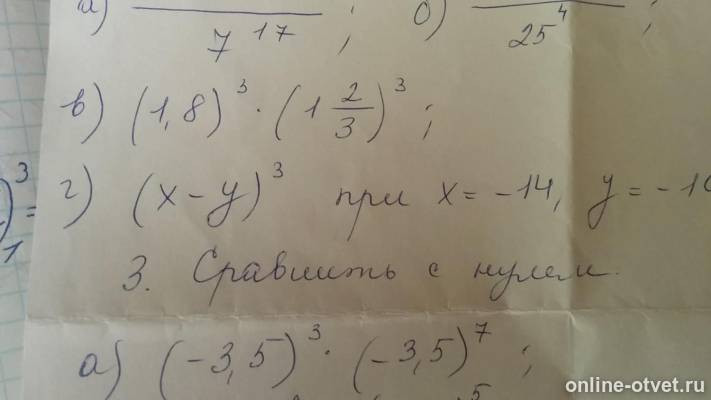 а) ――― ; б) ――― ;
7^17 25^4
в) (1,8)^3 · (1 2/3)^3 ;
г) (x-y)^3 при x = -14, y = -1
)^3 =
1
3. Сравнить с нулем.
а) (-3,5)^3 · (-3,5)^7 ;
5
online-otvet.ru